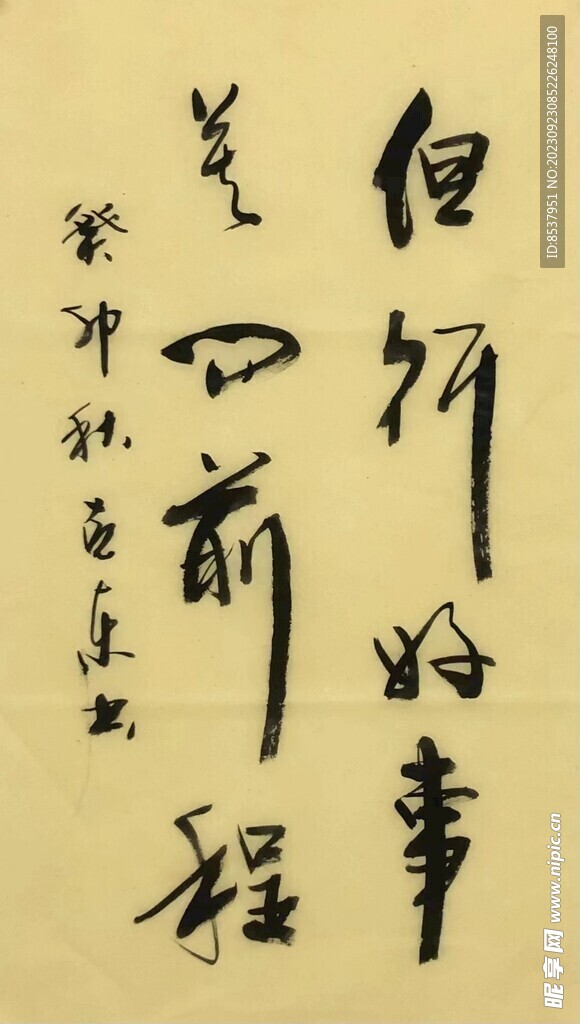 但行好事
莫问前程
癸卯秋 东书
ID:8537951 NO:20230923085226248100
昵享网 www.nipic.cn